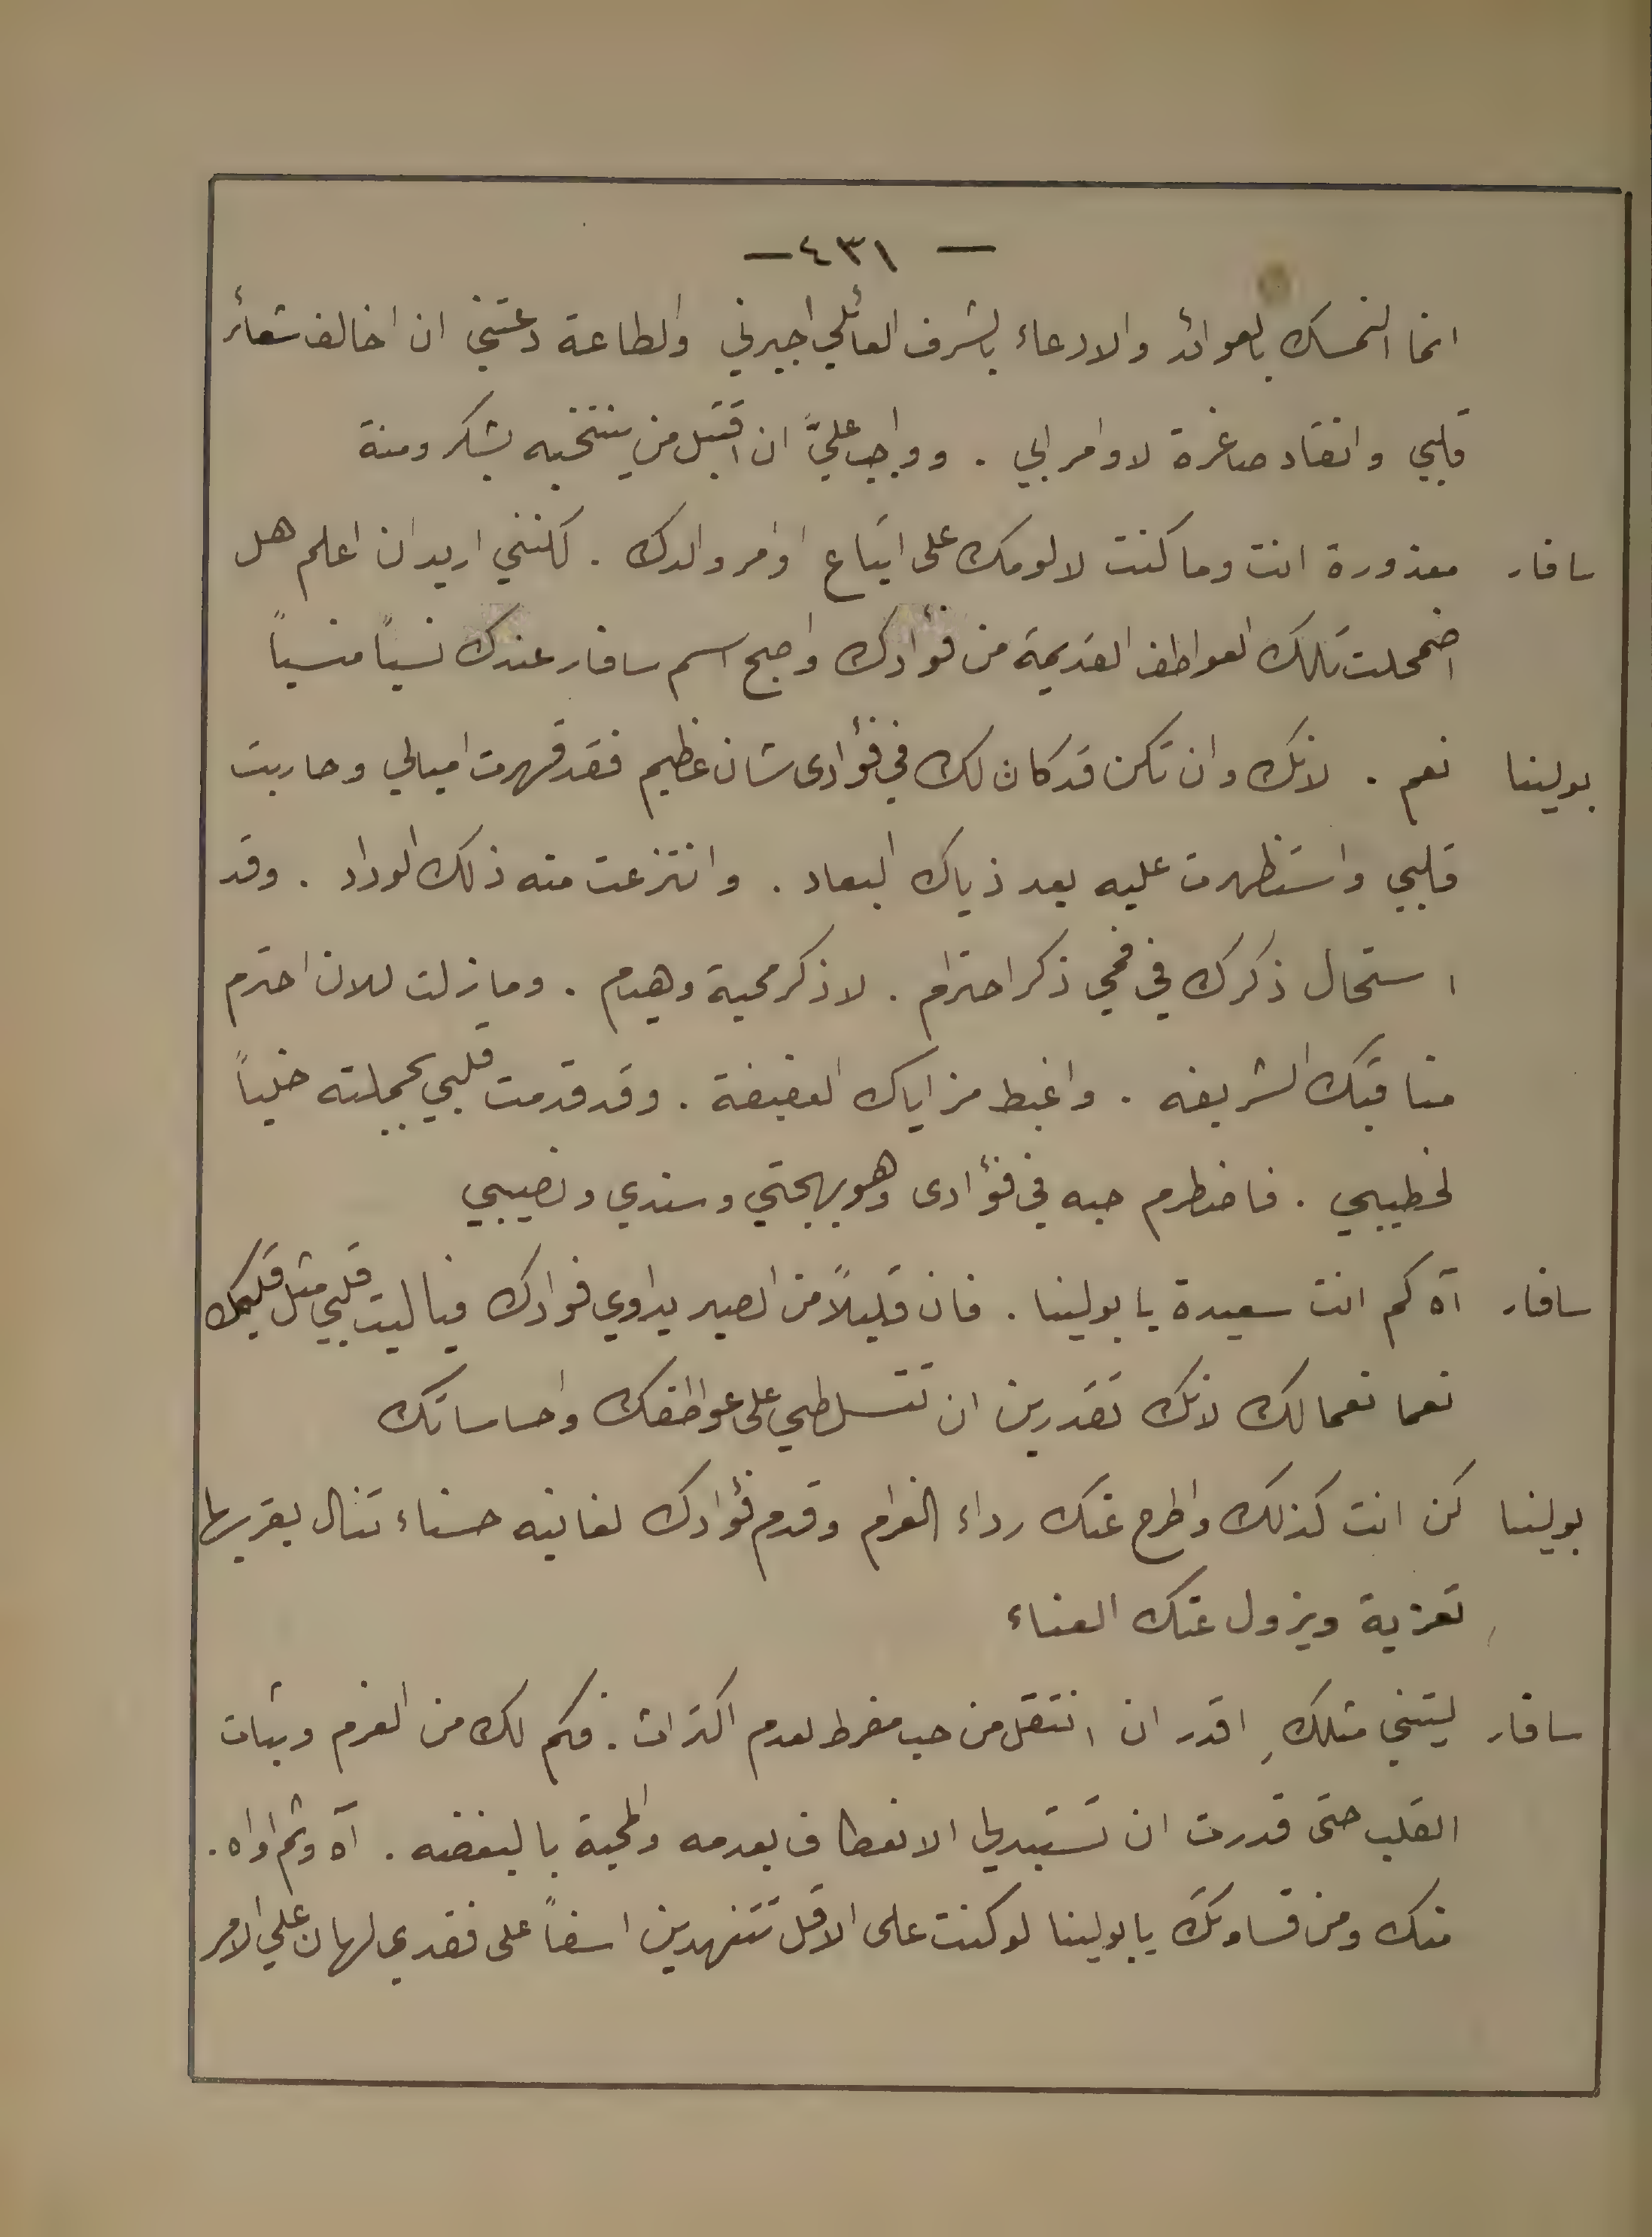 — ٤٣١ —
انما التمسك بالعوائد والادعاء بالشرف العائلي اجبرني والطاعة دعتني ان اخالف شعائر
قلبي وانقاد صاغرة لاوامر ابي . وواجب عليَّ ان اقتبل من ينتخبه بشكر ومنة
سافار معذورة انت وما كنت لالومك على اتباع اوامر والدك . لكنني اريد ان اعلم هل
اضمحلت تلك العواطف القديمة من فؤادك واصبح اسم سافار عندك نسياً منسياً
بولينا نعم . لانك وان تكن قد كان لك في فؤادى شان عظيم فقد قهرت اميالي وحاربت
قلبي واستظهرت عليه بعد ذياك البعاد . وانتزعت منه ذلك الوداد . وقد
استحال ذكرك في فمي ذكر احترام . لا ذكر محبة وهيام . وما زلت للان احترم
مناقبك الشريفه . واغبط مزاياك العفيفة . وقد قدمت قلبي بجملته خلياً
لخطيبي . فاضطرم حبه في فؤادى وهو بهجتي وسندي ونصيبي
سافار آه كم انت سعيدة يا بولينا . فان قليلاً من الصبر يداوي فوادك فيا ليت قلبي مثل قلبك
نعما نعما لك لانك تقدرين ان تتسلطي على عواطفك واحساساتك
بولينا كن انت كذلك واطرح عنك رداء الغرام وقدم فؤادك لغانيه حسناء تنال بقربها
تعزية ويزول عنك العناء
سافار ليتني مثلكِ اقدر ان انتقل من حب مفرط لعدم اكتراث . فكم لك من العزم وثبات
القلب حتى قدرت ان تستبدلي الانعطاف بعدمه والمحبة بالبغضه . آه وثم اواه .
منك ومن قساوتك يا بولينا لو كنت على الاقل تتنهدين اسفاً على فقدي لهان علي الامر